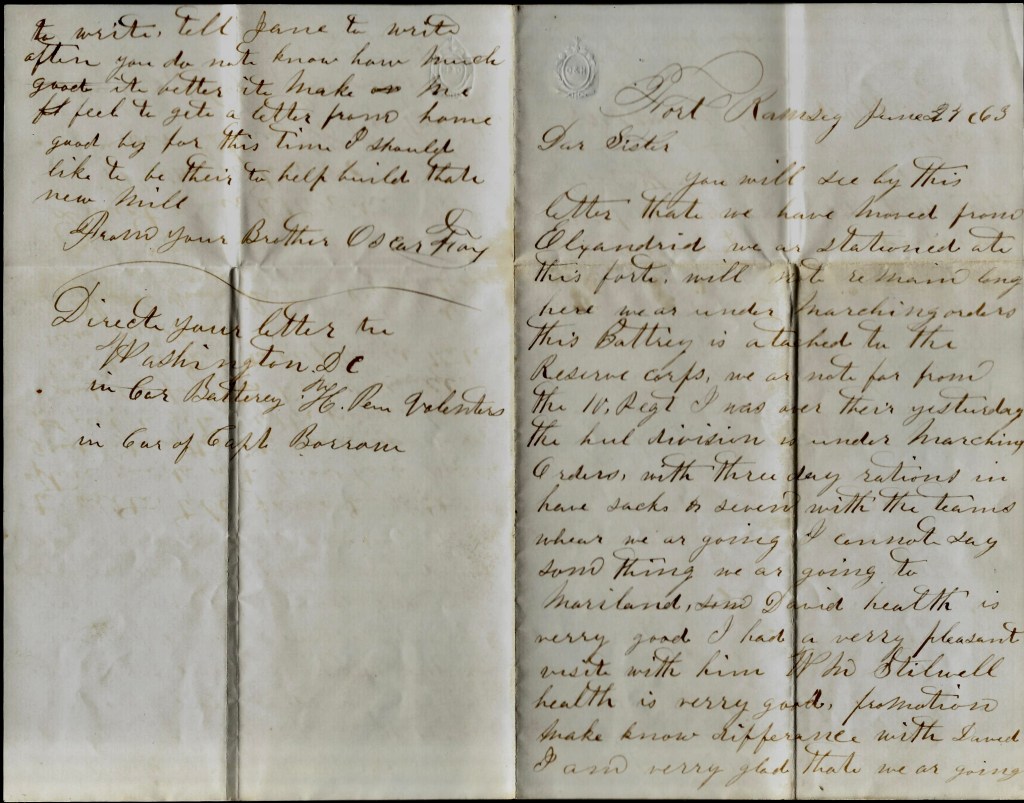 Fort Ramsey June 27 63
Dar Sister
you will see by this
letter thate we have moved from
Elyandrid we ar stationed ate
this forte, will note remain long
here we ar under Marching orders
this Battrey is atached to the
Reserve corps, we ar note far from
the 10, Regt I was over their yesturday
the hul division is under Marching
Orders, with three day rations in
have sacks & seven with the teams
whear we ar going I cannote say
som thing we ar going to
Mariland, som David health is
verry good I had a verry pleasant
visite with him W M Stilwell
health is verry good, promotion
make know differance with David
I am verry glad thate we ar going
to write, tell Jane to write
often you do note know how much
good ite better ite make me
feel to gete a letter from home
good by for this time I should
like to be their to help build thate
new Mill
From your Brother Oscar
Directe your letter to
Washington, DC
in Car Batterey H. Pen Volenters
in Car of Capt Borrow